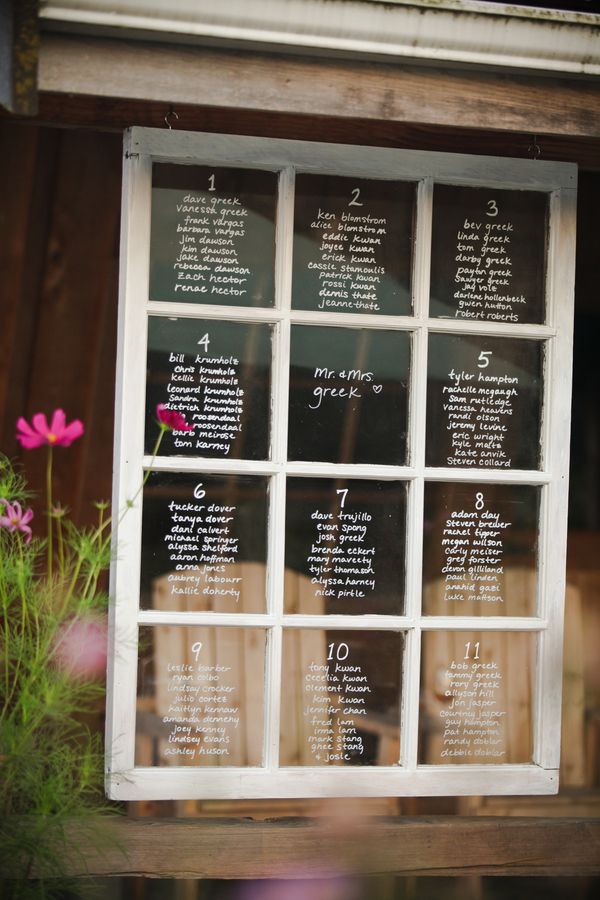 1
dave greek
vanessa greek
frank vargas
barbara vargas
jim dawson
kim dawson
jake dawson
rebecca dawson
zach hector
renae hector
2
ken blomstrom
alice blomstrom
eddie kwan
joyce kwan
erick kwan
cassie stamoulis
patrick kwan
rossi kwan
dennis thate
jeanne thate
3
bev greek
linda greek
tom greek
darby greek
payton greek
sawyer greek
jay volz
darlene hollenbeck
gwen hutton
robert roberts
4
bill krumholz
chris krumholz
kellie krumholz
leonard krumholz
sandra krumholz
dietrich krumholz
roosendaal
roosendaal
barb meirose
tom karney
Mr. & Mrs.
greek ♡
5
tyler hampton
rachelle mcgaugh
sam rutledge
vanessa heavens
randi olson
jeremy levine
eric wright
kyle maltz
kate anvik
Steven collard
6
tucker dover
tanya dover
dani calvert
michael springer
alyssa shelford
aaron hoffman
anna jones
aubrey labourr
kallie doherty
7
dave trujillo
evan spong
josh greek
brenda eckert
mary maveety
tyler thomason
alyssa harney
nick pirtle
8
adam day
Steven brewer
rachel tipper
megan wilson
carly meiser
greg forster
devon gilliland
paul linden
anahid gazi
luke mattson
9
leslie barber
ryan colbo
lindsay crocker
julio cortez
kaitlyn kennaw
amanda dennehy
joey kenney
lindsey evans
ashley huson
10
tony kwan
cecelia kwan
clement kwan
kim kwan
jennifer chan
fred lam
irma lam
mark stang
ghee stang
& josie
11
bob greek
tammy greek
rory greek
allyson hill
jon jasper
courtney jasper
guy hampton
pat hampton
randy doblar
debbie doblar